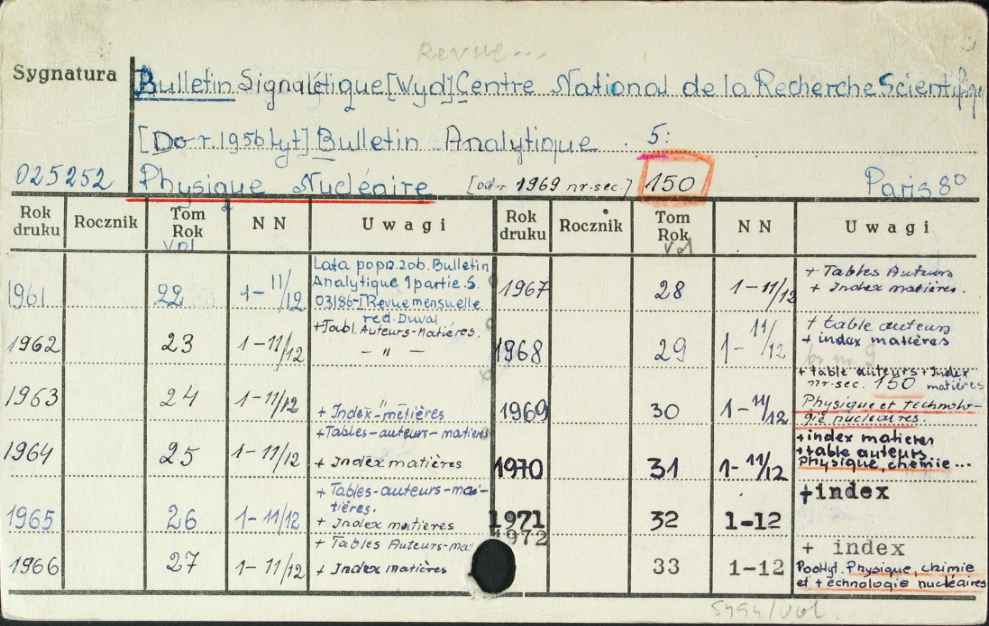 Revue...
Sygnatura
Bulletin Signalétique [Wyd] Centre National de la Recherche Scientifique
[Do r. 1956 tyt] Bulletin Analytique . 5:
025252 Physique Nucléaire [od r 1969 nr. sec.] 150 Paris 8°
Rok druku Rocznik Tom Rok vol NN Uwagi Rok druku Rocznik Tom Rok vol NN Uwagi
1961 22 1-11/12 Lata popn. zob. Bulletin
Analytique 1 partie S.
03/86-I Revue mensuelle
red. Duval
1962 23 1-11/12 +Tabl. Auteurs-Matières.
— " —
1963 24 1-11/12 "
+ Index-metières
1964 25 1-11/12 +Tables-auteurs-matières
+ Index matières
1965 26 1-11/12 + Tables-auteurs-ma-
tières.
+ Index matières
1966 27 1-11/12 + Tables Auteurs-ma
+ Index matières
1967 28 1-11/12 + Tables Auteurs
+ Index matières.
1968 29 1-11/12 + table auteurs
+ index matières
1969 30 1-11/12 + table auteurs + Index
nr-sec. 150 matières
Physique et technolo-
gie nucleaires.
1970 31 1-11/12 +index matieres
+table auteurs
Physique, chemie...
1971 32 1-12 +index
1972 33 1-12 + index
Podtyt. Physique, chimie
et technologie nucléaires